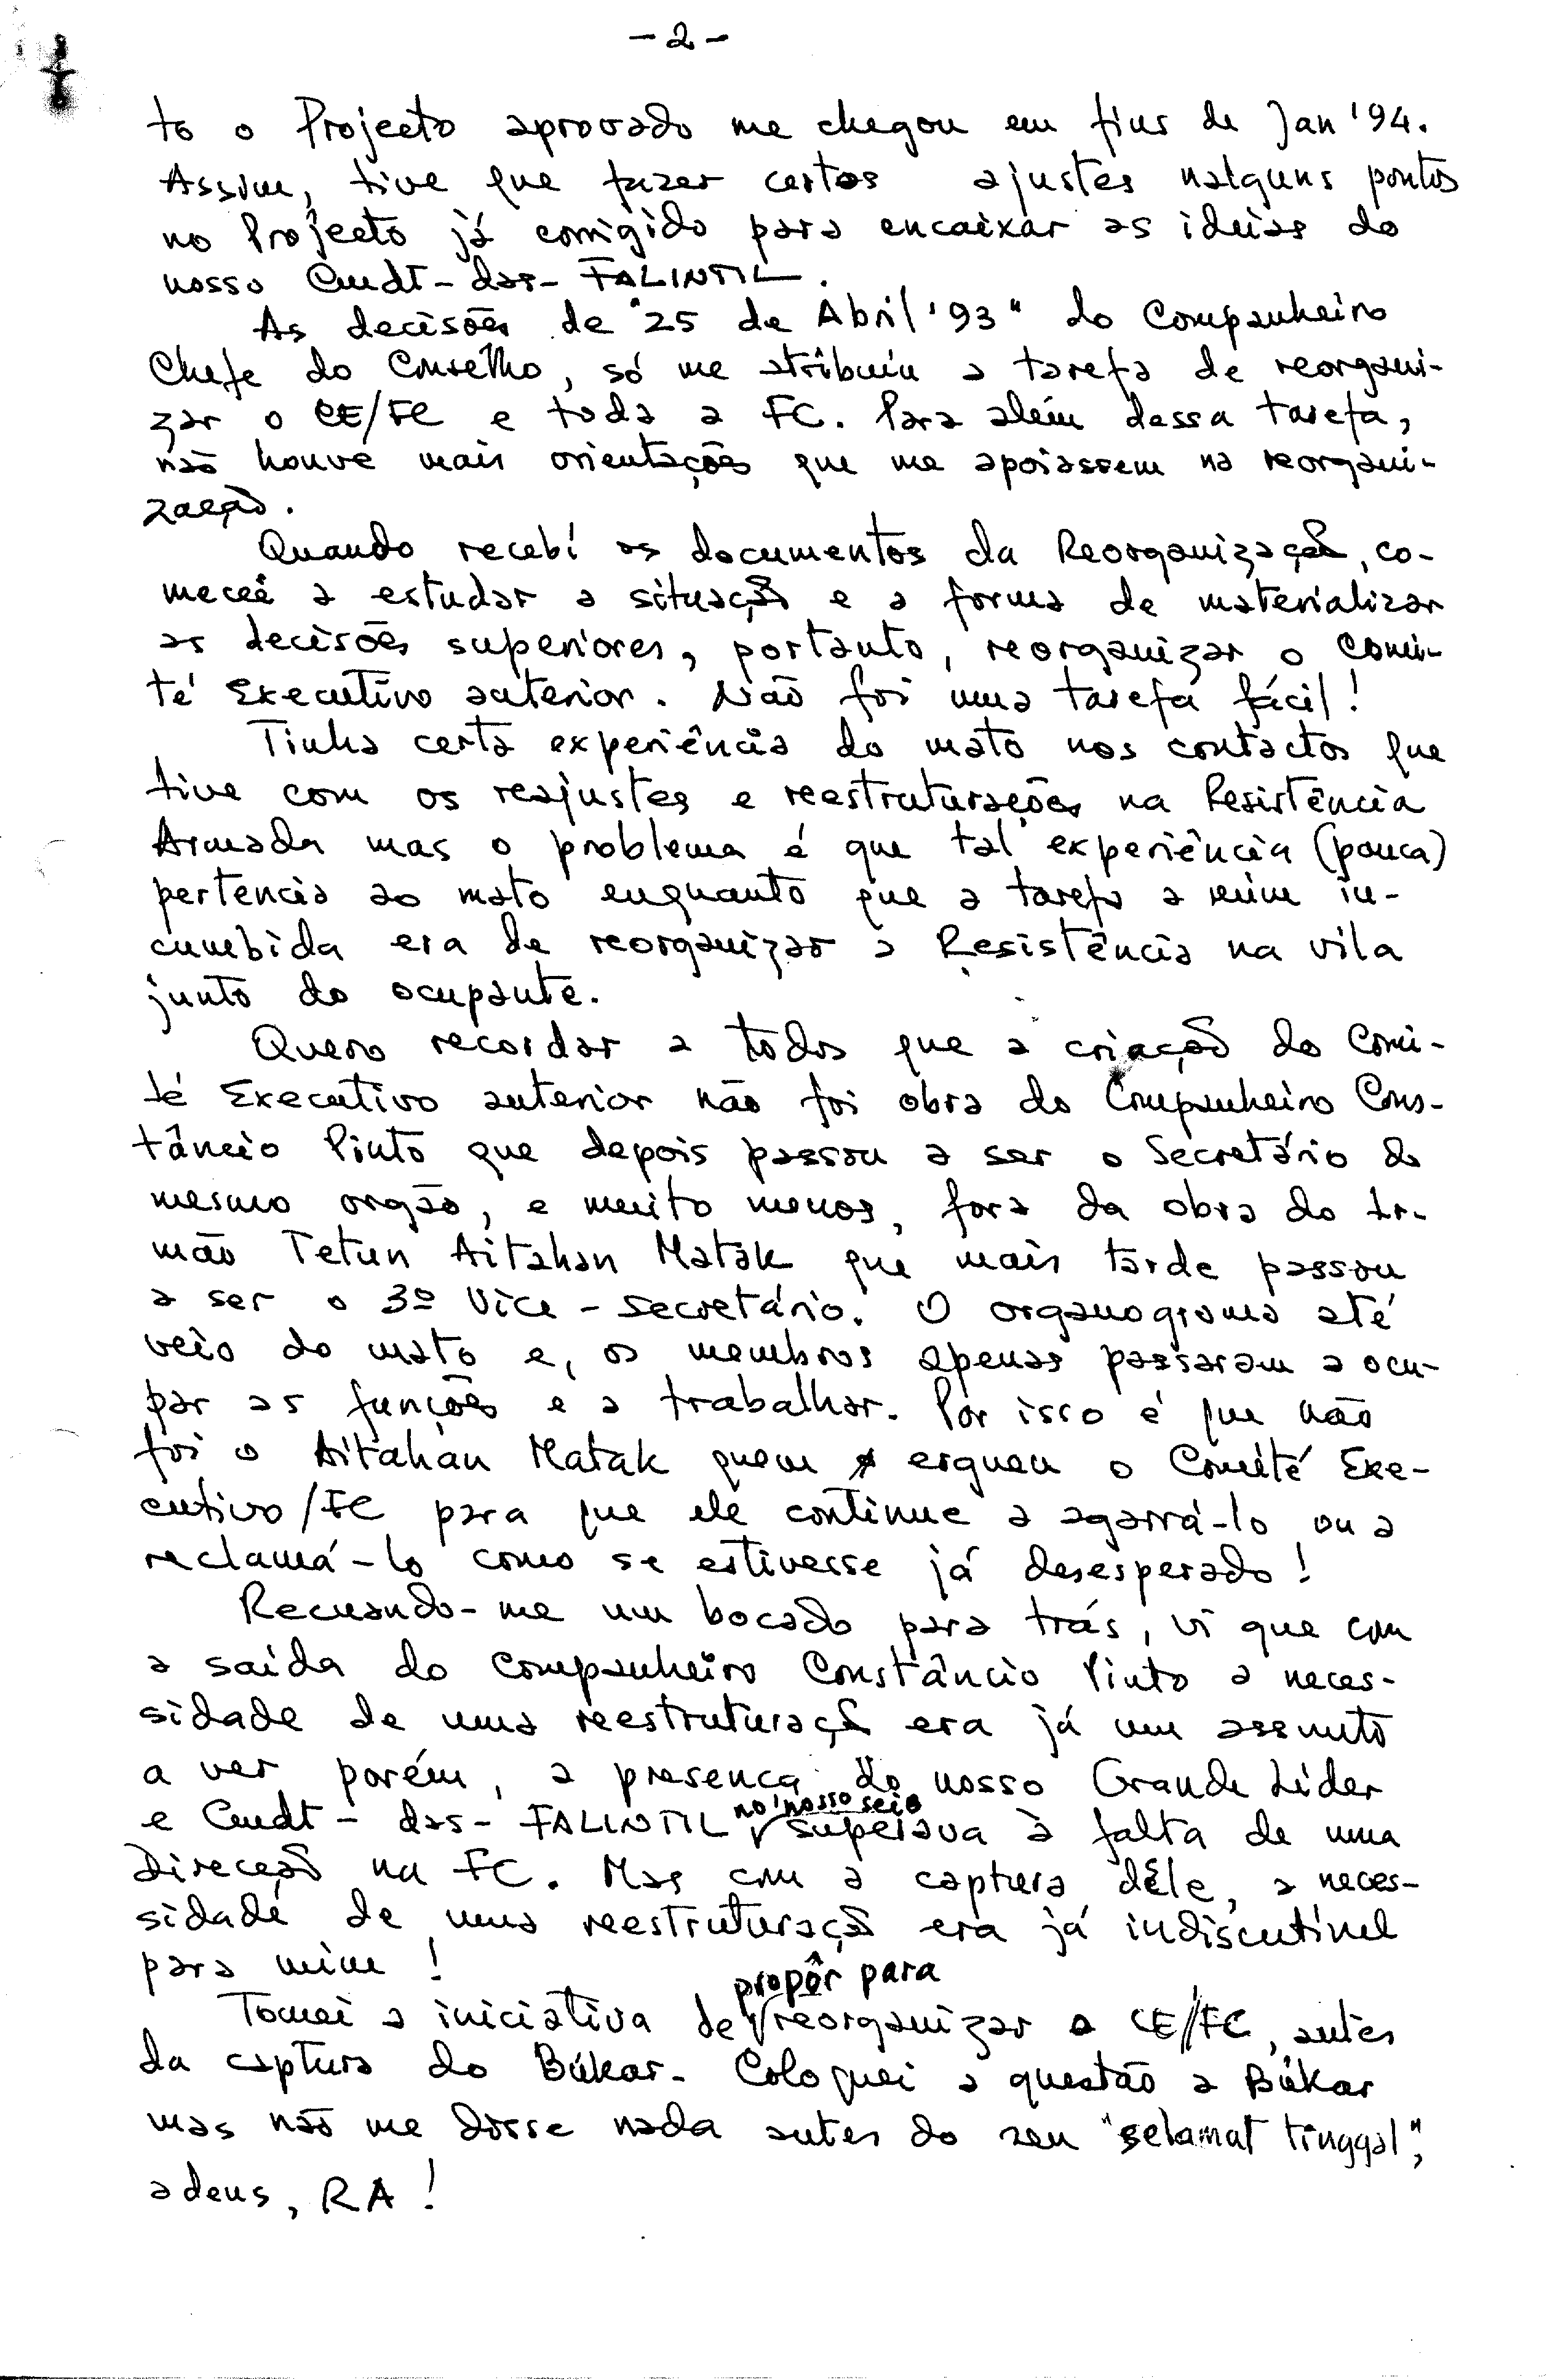 - 2 -
to o Projecto aprovado me chegou em fins de Jan '94.
Assim, tive que fazer certos ajustes nalguns pontos
no Projecto já corrigido para encaixar as ideias do
nosso Cmdt-das-FALINTIL.
As decisões de "25 de Abril '93" do Companheiro
Chefe do Conselho, só me atribuiu a tarefa de reorgani-
zar o CE/FC e toda a FC. Para além dessa tarefa,
não houve mais orientações que me apoiassem na reorgani-
zação.
Quando recebí os documentos da Reorganização, co-
mecei a estudar a situação e a forma de materializar
as decisões superiores, portanto, reorganizar o Comi-
té Executivo anterior. Não foi uma tarefa fácil!
Tinha certa experiência do mato nos contactos que
tive com os reajustes e reestruturações na Resistência
Armada mas o problema é que tal experiência (pouca)
pertencia ao mato enquanto que a tarefa a mim in-
cumbida era de reorganizar a Resistência na vila
junto do ocupante.
Quero recordar a todos que a criação do Comi-
té Executivo anterior não foi obra do Companheiro Cons-
tâncio Pinto que depois passou a ser o Secretário do
mesmo orgão, e muito menos, fora da obra do Ir-
mão Tetun Aitahan Matak que mais tarde passou
a ser o 3º Vice-Secretário. O organograma até
veio do mato e, os membros apenas passaram a ocu-
par as funções e a trabalhar. Por isso é que não
foi o Aitahan Matak quem ergueu o Comité Exe-
cutivo/FC para que ele continue a agarrá-lo ou a
reclamá-lo como se estivesse já desesperado!
Recuando-me um bocado para trás, vi que com
a saída do Companheiro Constâncio Pinto a neces-
sidade de uma reestruturação era já um assunto
a ver porém, a presença do nosso Grande Líder
e Cmdt-das-FALINTIL no nosso seio superava à falta de uma
Direcção na FC. Mas com a captura dêle, a neces-
sidade de uma reestruturação era já indiscutível
para mim!
Tomei a iniciativa de propôr para reorganizar o CE/FC, antes
da captura do Búkar. Coloquei a questão a Búkar
mas não me disse nada antes do seu "selamat tinggal",
adeus, RA!